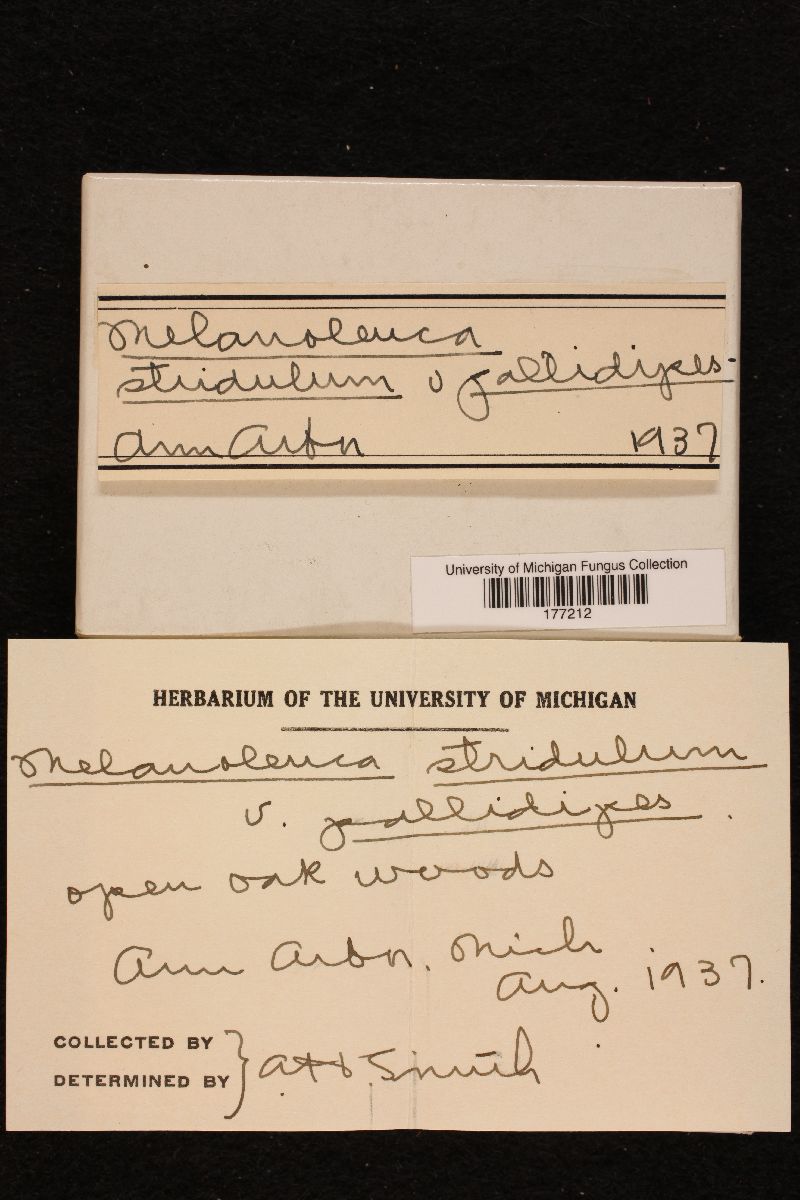 Melanoleuca
stridulum v pallidipes
Ann Arbor 1937
University of Michigan Fungus Collection
177212
HERBARIUM OF THE UNIVERSITY OF MICHIGAN
Melanoleuca stridulum
v. pallidipes.
open oak woods
Ann Arbor. Mich
Aug. 1937.
COLLECTED BY
DETERMINED BY } A H Smith